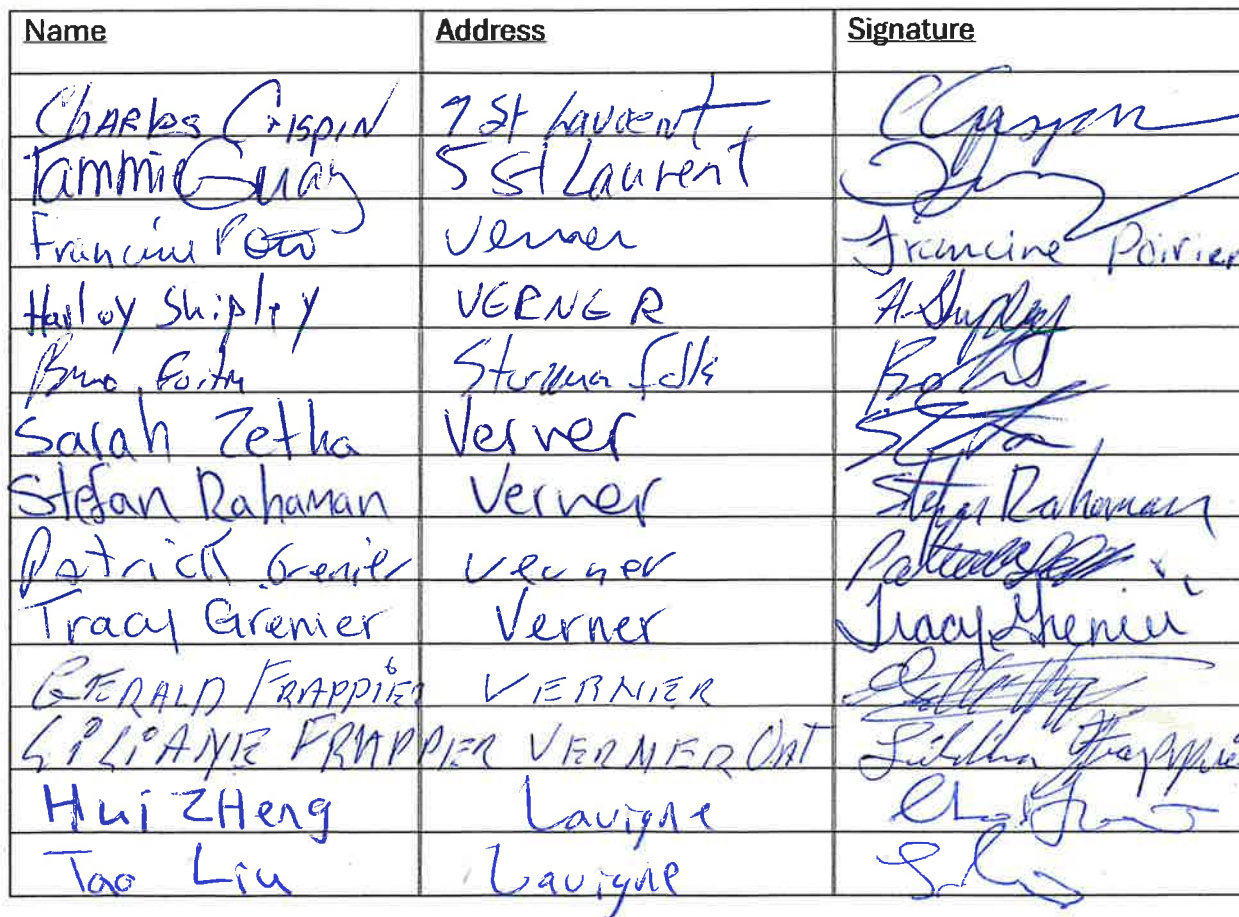 Name Address Signature
CHARLES CRISPIN 7 St Laurent, CCrispin
Tammie Guay 5 St Laurent
Francine Verner Francine Poirier
Harley Shipley VERNER H. Shipley
Falls
Sarah Zetka Verner
Stefan Rahaman Verner Stefan Rahaman
Patrick Grenier verner
Tracy Grenier Verner Tracy Grenier
GERALD FRAPPIER VERNIER
LILIANE FRAPPIER VERNER ONT Frappier
Hui ZHeng Lavigne
Tao Liu Lavigne